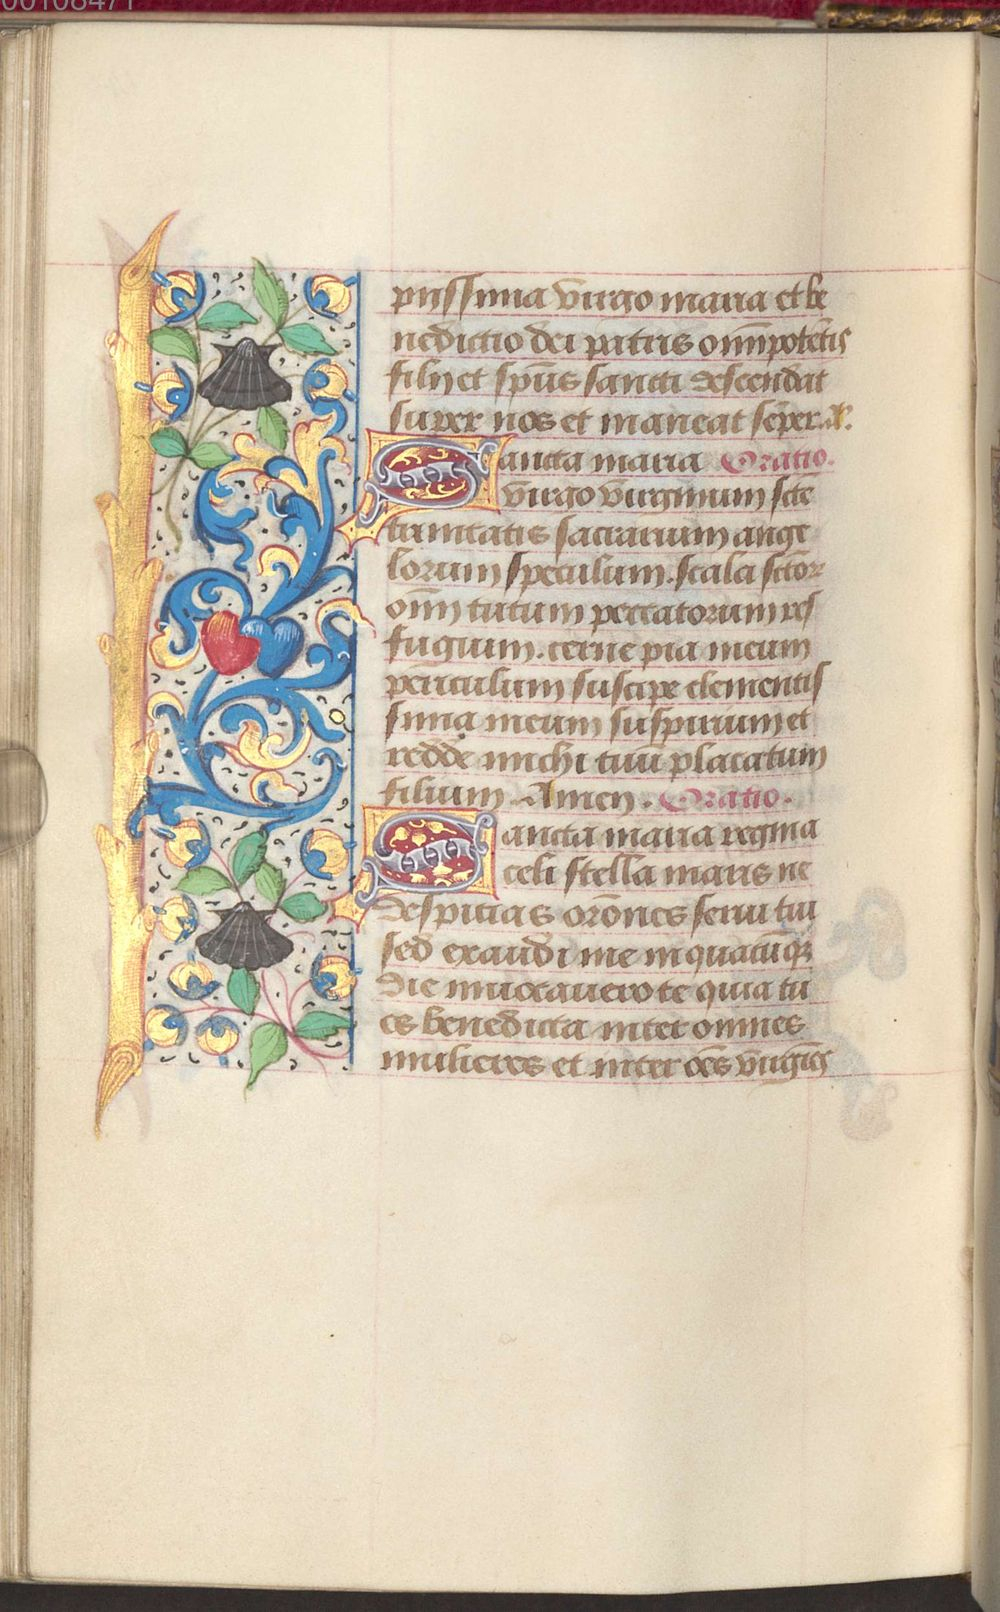 00108471
piissima virgo maria et be
nedictio dei patris omīpotētis
filij et sp̄us sancti descendat
super nos et maneat sēper. A.
Sancta maria Oratio.
virgo virginum scē
trinitatis sacrarium ange
lorum speculum. scala sctōꝝ
omī tutum peccatorum res
fugium. cerne pia meum
periculum suscipe clementis
sima meum suspirium et
redde michi tuū placatum
filium Amen. Oratio.
Sancta maria regina
celi stella maris ne
despicias orōnes serui tui
sed exaudi me in quacūqꝫ
die inuocauero te quia tu
es benedicta inter omnes
mulieres et inter oēs virgīēs